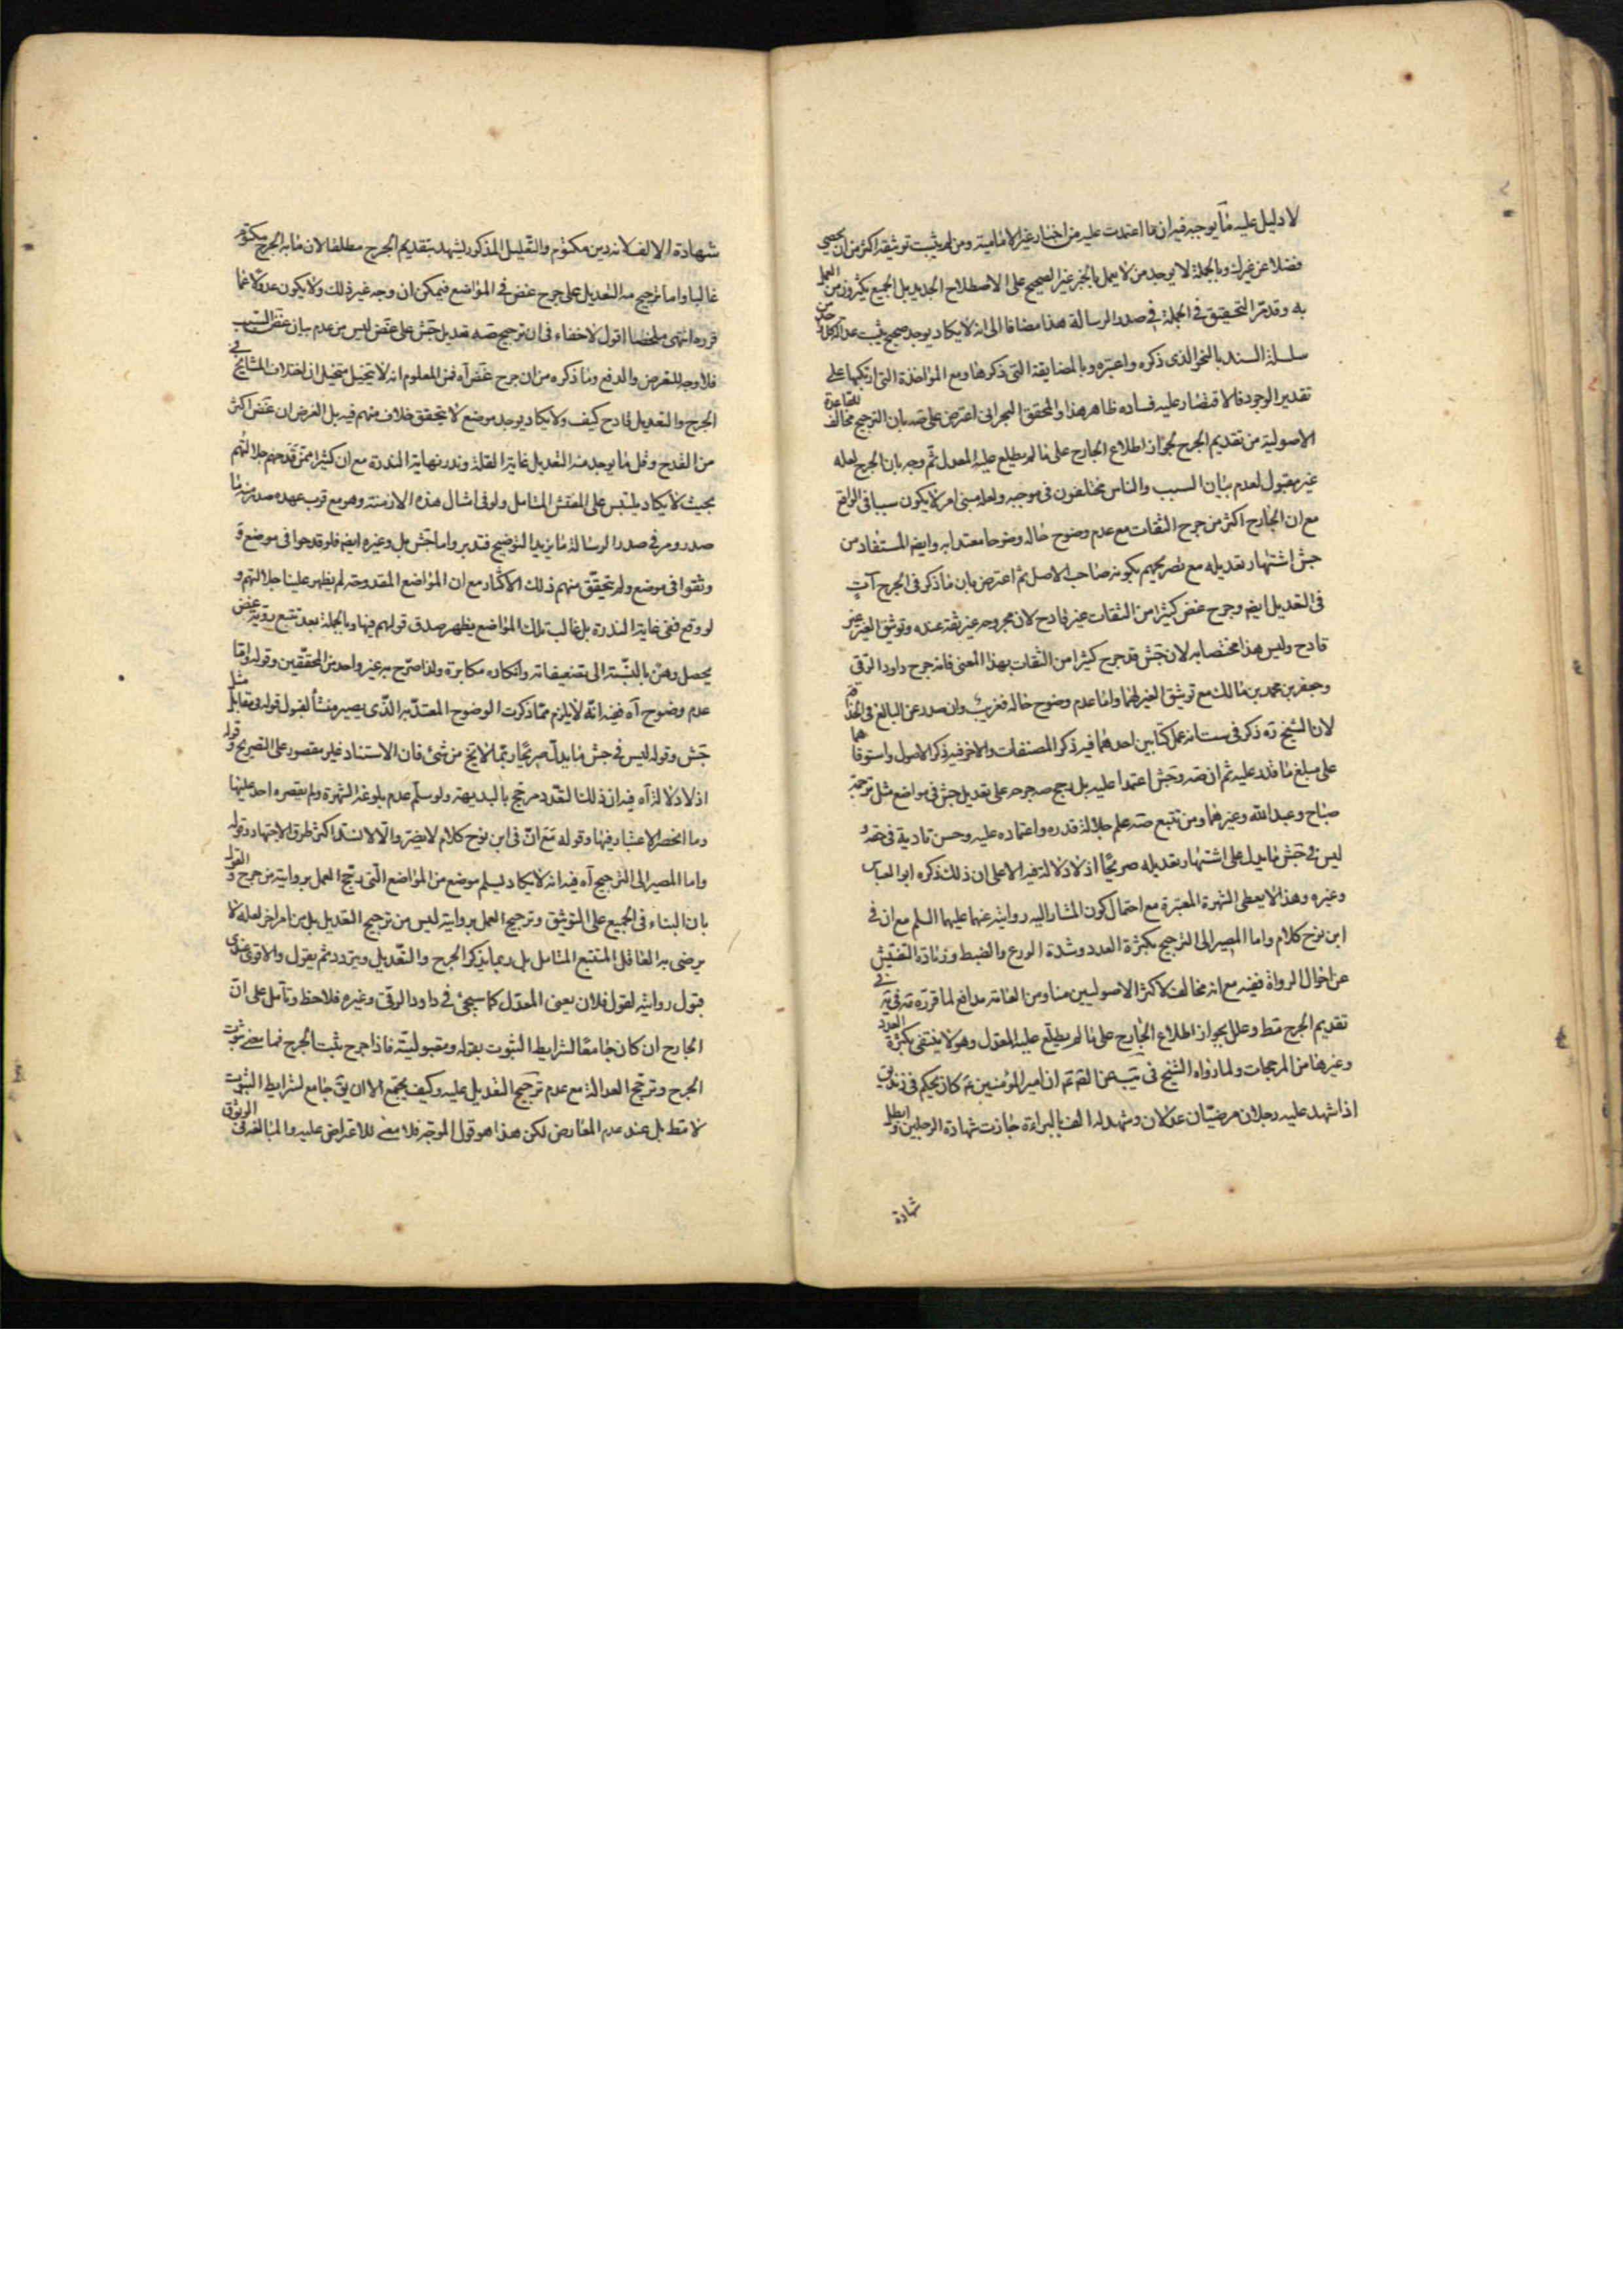 لا دليل عليه مما يوجبه فيه ان ما اعتمدت عليه من اخبار غير الامامية ومن لم يثبت توثيقه اكثر من ان يحصى
فضلا عن غيرك وبالجملة لا يوجد من لا يعمل بالخبر غير الصحيح على الاصطلاح الجديد بل الجميع يكثرون من العمل
به وقد مر التحقيق في الجملة في صدر الرسالة هذا مضافا الى انه لا يكاد يوجد صحيح يثبت عدالة كل واحد من
سلسلة السند بالنحو الذى ذكره واعتبره وبالمضايقة التى ذكرها ومع المؤاخذة التى ارتكبها على
تقدير الوجود فالاقتصار عليه فساده ظاهر هذا والمحقق البحرانى اعترض على صه بان الترجيح مخالف للقاعدة
الاصولية من تقديم الجرح لجواز اطلاع الجارح على ما لم يطلع عليه المعدل ثم وجه بان الجرح لعله
غير مقبول لعدم بيان السبب والناس مختلفون فى موجبه ولعله مبنى امر لا يكون سببا فى الواقع
مع ان الجارح اكثر من جرح الثقات مع عدم وضوح حاله وضوحا معتدا به وايضا المستفاد من
جش اشتهار تعديله مع تصريحهم بكونه صاحب الاصل ثم اعترض بان ما ذكر فى الجرح آت
فى التعديل ايضا وجرح غض كثيرا من الثقات غير قادح لان مجروحه غير ثقة عنده وتوثيق الغير غير
قادح وليس هذا مختصا به لان جش قد جرح كثيرا من الثقات بهذا المعنى فانه جرح داود الرقى
وجعفر بن محمد بن مالك مع توثيق الغير لهما واما عدم وضوح حاله فغريب وان صدر عن البالغ فى الحذاقة
لان الشيخ ره ذكر فى ست انه عمل كتابين احدهما فيه ذكر المصنفات والاخر فيه ذكر الاصول واستوفاهما
على مبلغ ما قدر عليه ثم ان صه وجش اعتمدا عليه بل رجح صه جرحه على تعديل جش فى مواضع مثل ترجمة
صباح وعبد الله وغيرهما ومن تتبع صه علم جلالة قدره واعتماده عليه وحسن تاديه فى حقه و
ليس فى جش ما يدل على اشتهار تعديله صريحا اذ لا دلالة فيه الا على ان ذلك ذكره ابو العباس
وغيره وهذا لا يعطى الشهرة المعتبرة مع احتمال كون المشار اليه روايته عنهما عليهما السلم مع ان فى
ابن نوح كلام واما المصير الى الترجيح بكثرة العدد وشدة الورع والضبط وزيادة التفتيش
عن احوال الرواة ففيه مع انه مخالف لاكثر الاصوليين منا ومن العامة مدافع لما قرره فى
تقديم الجرح فقط وعلل بجواز اطلاع الجارح على ما لم يطلع عليه المعدل وهو لا ينتفى بكثرة العدد
وغيرها من المرجحات ولما رواه الشيخ فى يب عن الصم ان امير المؤمنين ع كان يحكم فى زنديق
اذا شهد عليه رجلان مرضيان عدلان وشهد له الف بالبراءة جازت شهادة الرجلين وابطل
شهادة
شهادة الالف لانه دين مكتوم والتعليل المذكور يشهد بتقديم الجرح مطلقا لان ما به الجرح مكتوم
غالبا واما ترجيح صه التعديل على جرح غض فى المواضع فيمكن ان وجه غير ذلك ولا يكون عدولا عما
قرره انتهى ملخصا اقول لا خفاء فى ان ترجيح صه تعديل جش على غض ليس من عدم بيان غض السبب
فلا وجه للتعرض والدفع وما ذكره من ان جرح غض آه فمن المعلوم انه لا يتخيل متخيل ان اختلاف المشايخ فى
الجرح والتعديل قادح كيف ولا يكاد يوجد موضع لا يتحقق خلاف منهم فيه بل الغرض ان غض اكثر
من القدح وقل ما يوجد منه التعديل غاية القلة وندر نهاية الندرة مع ان كثيرا ممن قدحهم جلالتهم
بحيث لا يكاد يلتبس على المفتش المتامل ولو فى امثال هذه الازمنة وهو مع قرب عهده صدر منه ما
صدر ومر فى صدر الرسالة ما يزيد التوضيح فتدبر واما جش بل وغيره ايضا فلو قدحوا فى موضع و
وثقوا فى موضع ولم يتحقق منهم ذلك الاكثار مع ان المواضع المقدوحة لم يظهر علينا جلالتهم و
لو وقع ففى غاية الندرة بل غالب تلك المواضع يظهر صدق قولهم فيها وبالجملة بعد تتبع روية غض
يحصل وهن بالنسبة الى تضعيفاته وانكاره مكابرة ولذا صرح به غير واحد من المحققين وقوله واما
عدم وضوح آه فيه انه لا يلزم مما ذكرت الوضوح المعتد به الذى يصير منشأ لقبول قوله فى مقابل مثل
جش وقوله ليس فى جش ما يدل صريحا ربما لا يخ من شئ فان الاستناد غير مقصور على التصريح وقوله
اذ لا دلالة آه فيه ان ذلك القدر مرجح بالبديهة ولو سلم عدم بلوغه الشهرة ولم يقصره احد عليها
وما انحصر الاعتبار فيها وقوله مع ان فى ابن نوح كلام لا يضر والا لانسد اكثر طرق الاجتهاد وقوله
واما المصير الى الترجيح آه فيه انه لا يكاد يسلم موضع من المواضع التى رجح العمل برواية من جرح والقول
بان البناء فى الجميع على التوثيق وترجيح العمل بروايته ليس من ترجيح التعديل بل من امر اخر لعله لا
يرضى به العاقل المتتبع المتامل بل ربما يذكر الجرح والتعديل ويتردد ثم يقول والاقوى عندى
قبول روايته لقول فلان يعنى المعدل كما سيجئ فى داود الرقى وغيره فلاحظ وتأمل على ان
الجارح ان كان جامعا لشرايط الثبوت بقوله ومقبوليته فاذا جرح يثبت الجرح فما معنى ثبوت
الجرح وترجح العدالة مع عدم ترجيح التعديل عليه وكيف يجتمع الا ان يق جامع لشرايط الثبوت
لا مقط بل عند عدم المعارض لكن هذا هو قول الموجه فلا معنى للاعتراض عليه والمبالغة فى الوثوق